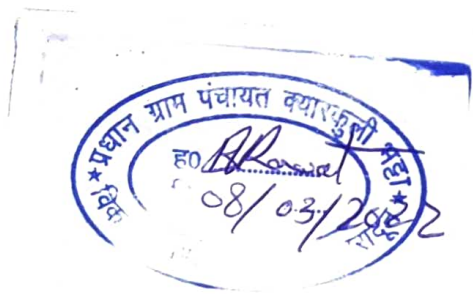 ★ प्रधान ग्राम पंचायत क्यारकुली भट्टा ★
ह0
08/03/2022